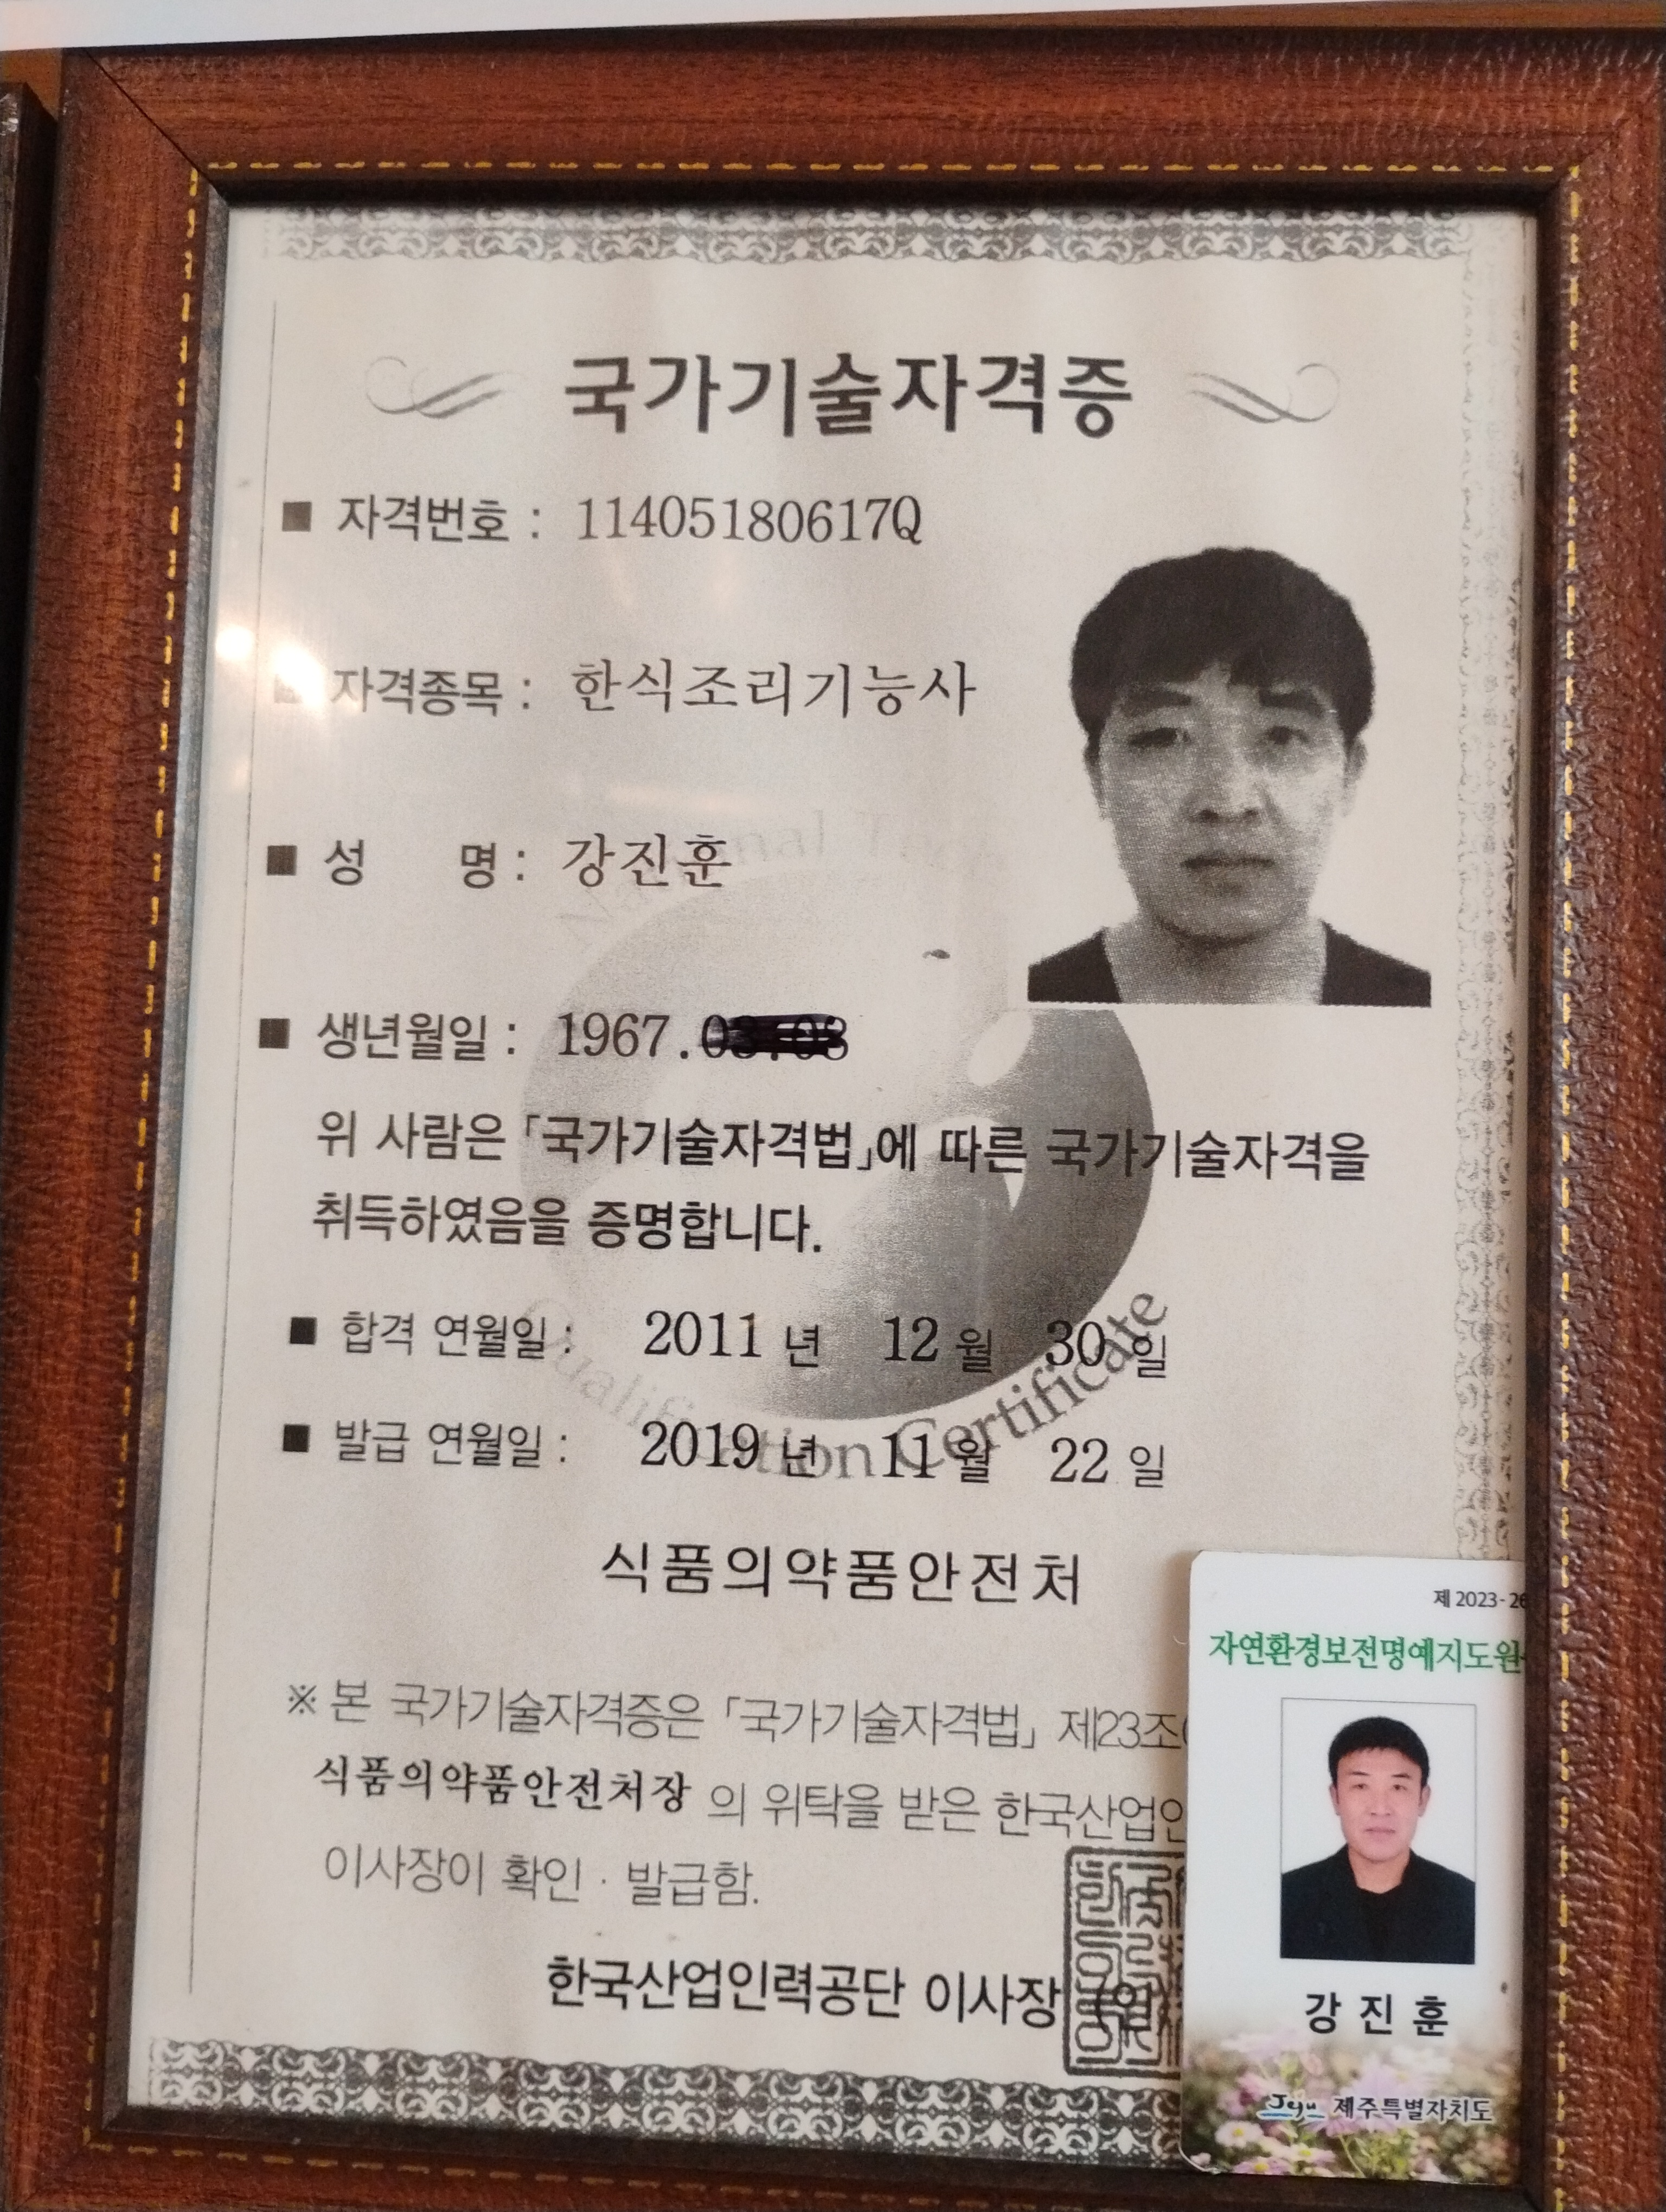 국가기술자격증
■ 자격번호 : 11405180617Q
■ 자격종목 : 한식조리기능사
■ 성 명 : 강진훈
■ 생년월일 : 1967.
위 사람은 「국가기술자격법」에 따른 국가기술자격을
취득하였음을 증명합니다.
■ 합격 연월일 : 2011 년 12 월 30 일
■ 발급 연월일 : 2019 년 11 월 22 일
Qualification Certificate
식품의약품안전처
※ 본 국가기술자격증은 「국가기술자격법」 제23조
식품의약품안전처장 의 위탁을 받은 한국산업인
이사장이 확인 · 발급함.
한국산업인력공단 이사장 (인)
제 2023-26
자연환경보전명예지도원
강 진 훈
Jeju 제주특별자치도